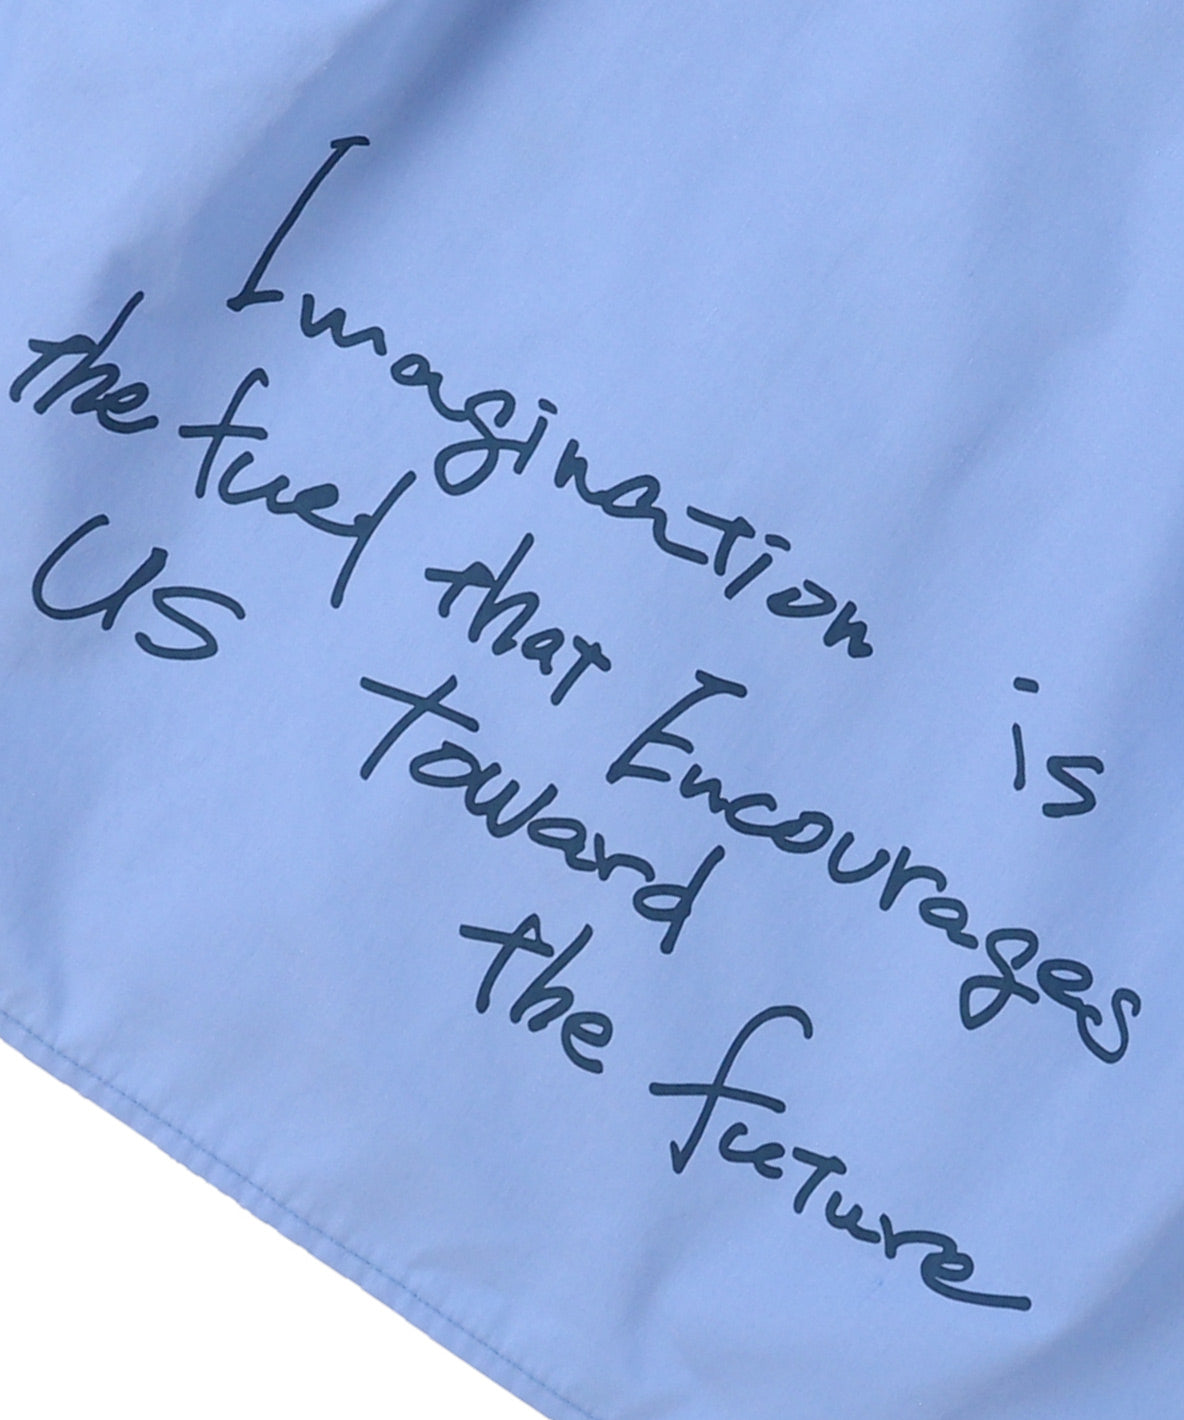 Imagination is
the fuel that Encourages
US toward
the future